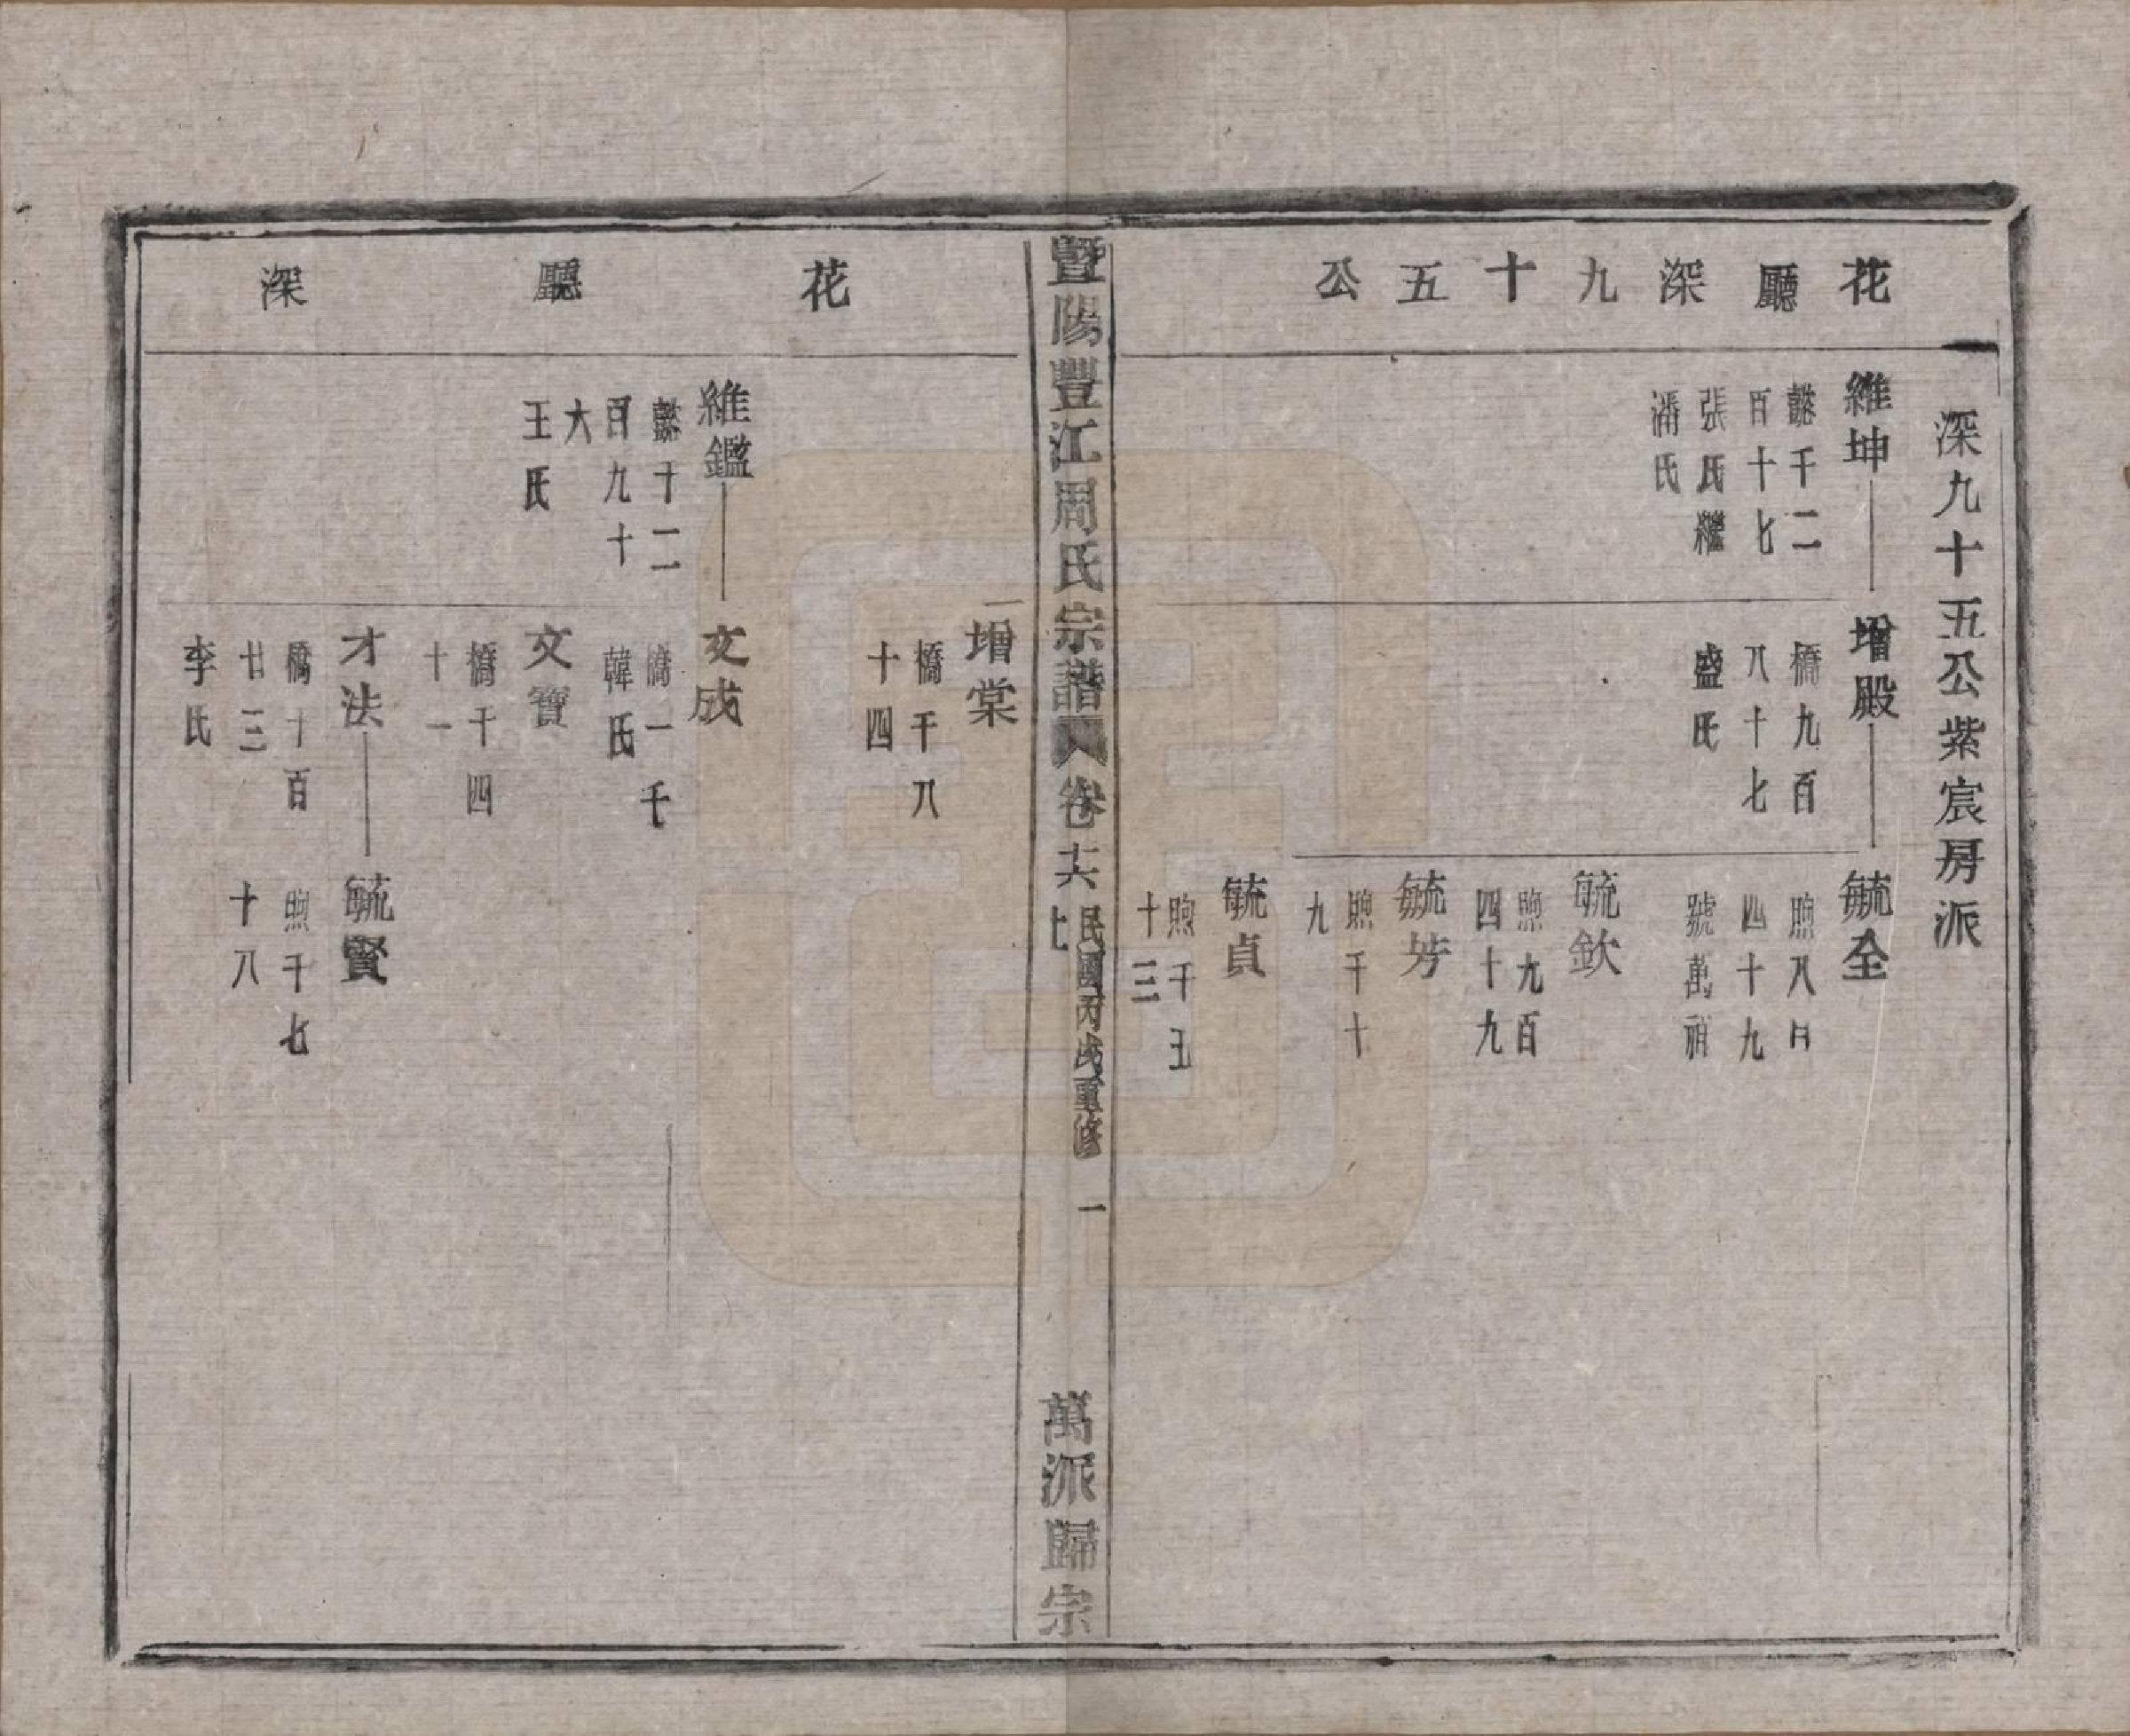 深九十五公紫宸房派
花廳深九十五公
維坤
懿千二
百十七
張氏繼
潘氏
增殿
橋九百
八十七
盛氏
毓全
煦八百
四十九
號萬
毓欽
煦九百
四十九
毓芳
煦千十
九
毓貞
煦千五
十三
暨陽豐江周氏宗譜
卷六
民國丙戌重修
一
萬派歸宗
花廳深
增棠
橋千八
十四
維鑑
懿千二
百九十
六
王氏
文成
橋一千
韓氏
文寶
橋千四
十一
才法
橋十百
廿三
李氏
毓賢
煦千七
十八